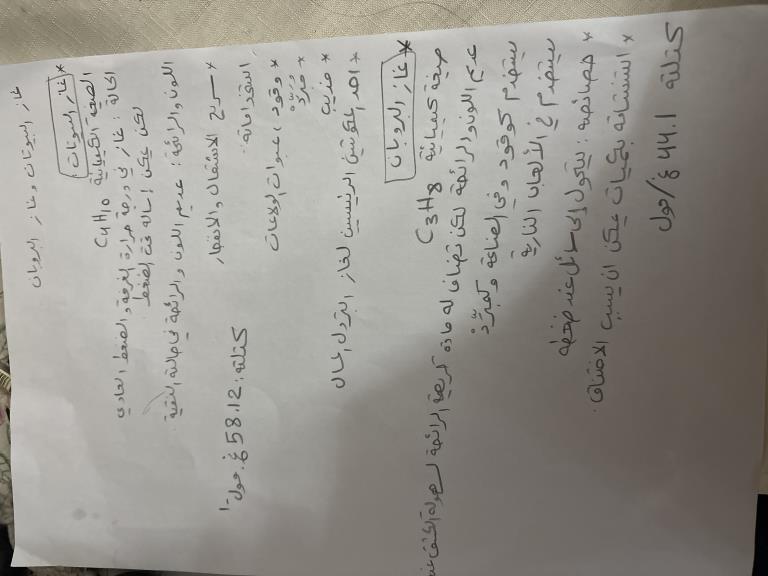 غاز البيوتان وغاز البروبان
* غاز البيوتان:
الصيغة الكيميائية C4H10
الحالة: غاز في درجة حرارة الغرفة و الضغط العادي
لكن يمكن إسالة تحت الضغط
اللون والرائحة: عديم اللون و الرائحة في حالته النقية.
* سريع الاشتعال والانفجار
كتلته: 58.12 غ.مول-1
استخداماته:
* وقود، عبوات الولاعات
* مبرّد
* مذيب
* احد المكونين الرئيسيين لغاز البترول المسال
* غاز البروبان
صيغة كيميائية C3H8
عديم اللون والرائحة لكن تضاف له مادة كريهة الرائحة لسهولة الكشف عنه
يستخدم كوقود وفي الصناعة وكمبرّد
يستخدم في الألعاب النارية
* خصائصه: يتحول إلى سائل عند ضغطه
* استنشاقه بكميات يمكن ان يسبب الاختناق.
كتلته 44.1 غ/مول